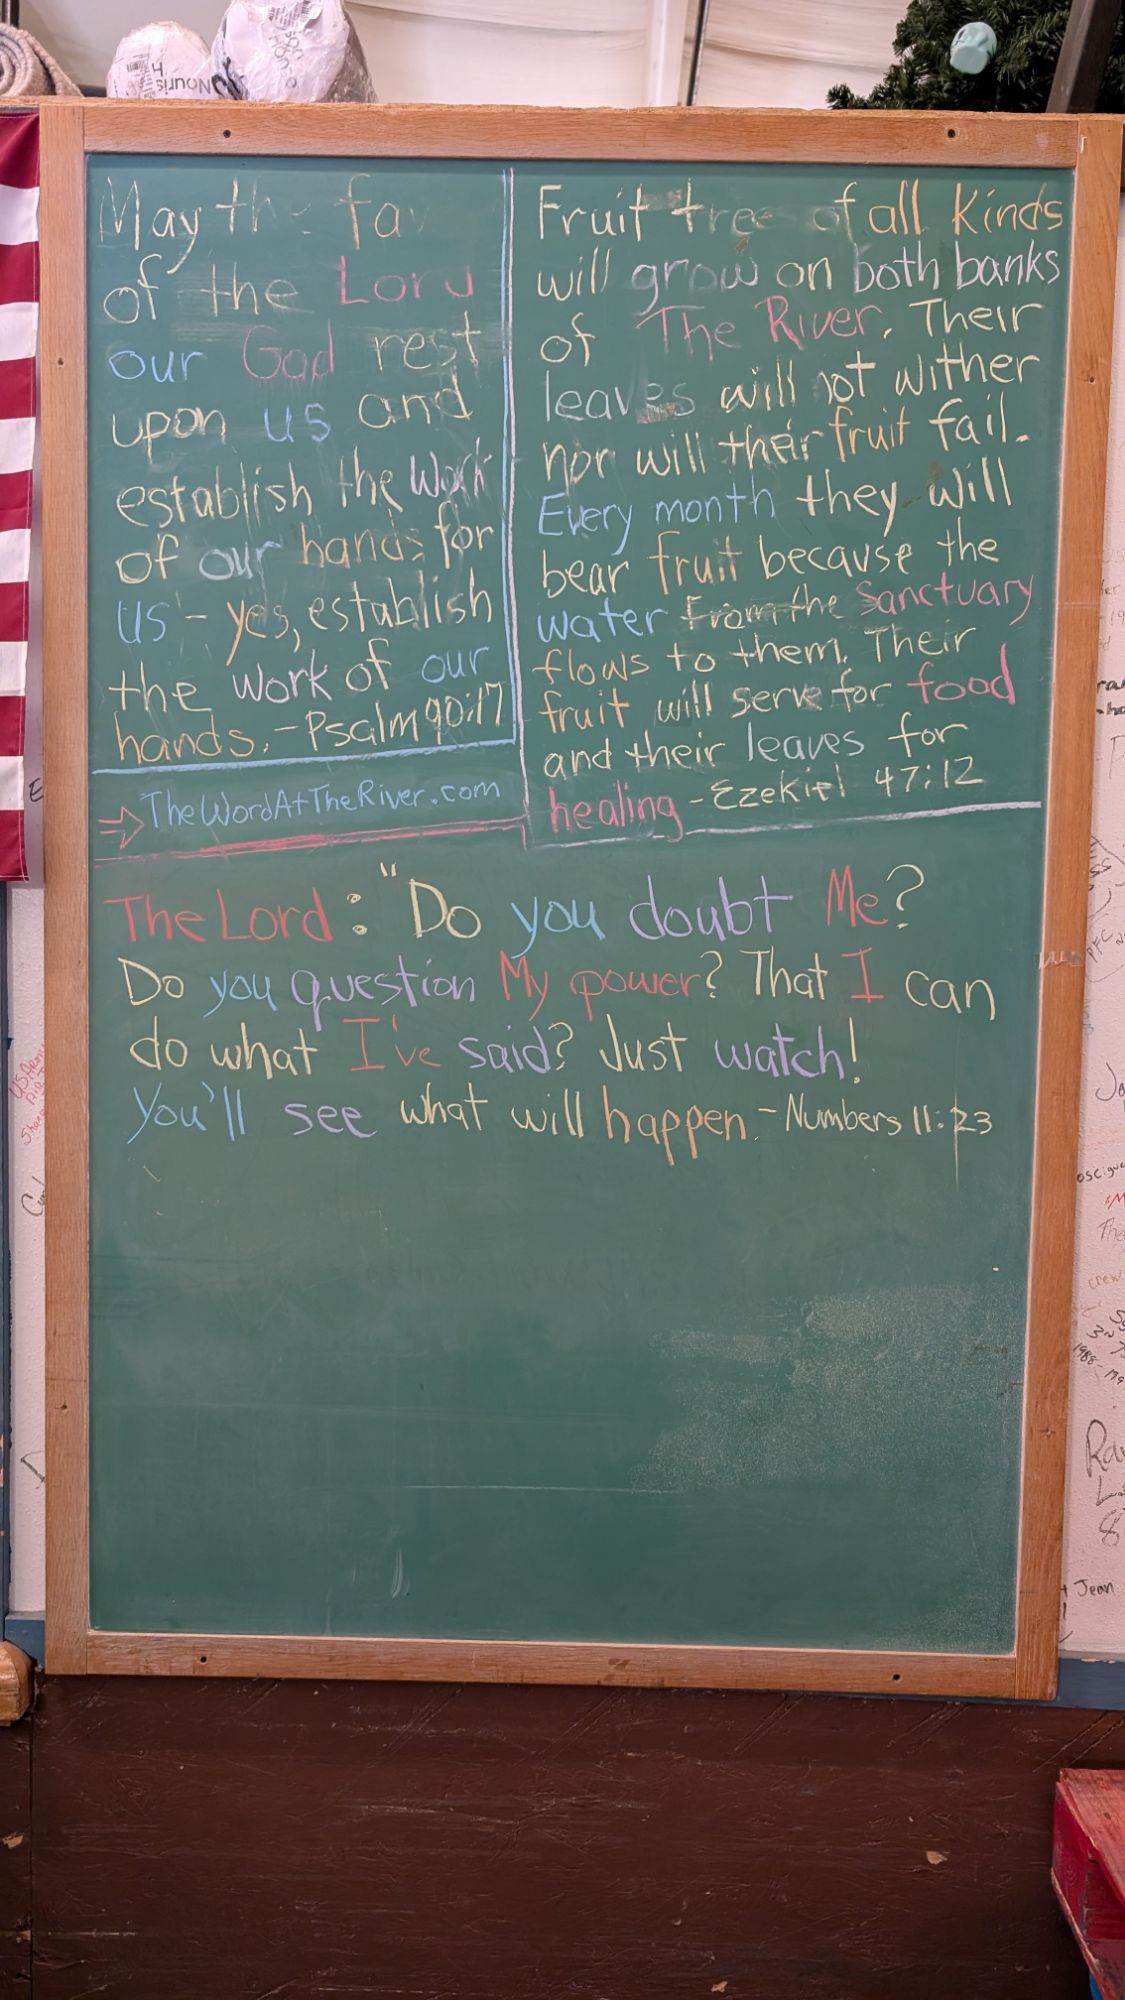 May the fa
of the Lord
our God rest
upon us and
establish the work
of our hands for
us - yes, establish
the work of our
hands. - Psalm 90:17
TheWordAtTheRiver.com
Fruit trees of all Kinds
will grow on both banks
of The River. Their
leaves will not wither
nor will their fruit fail.
Every month they will
bear fruit because the
water from the Sanctuary
flows to them. Their
fruit will serve for food
and their leaves for
healing - Ezekiel 47:12
The Lord: "Do you doubt Me?
Do you question My power? That I can
do what I've said? Just watch!
You'll see what will happen. - Numbers 11:23
Jean